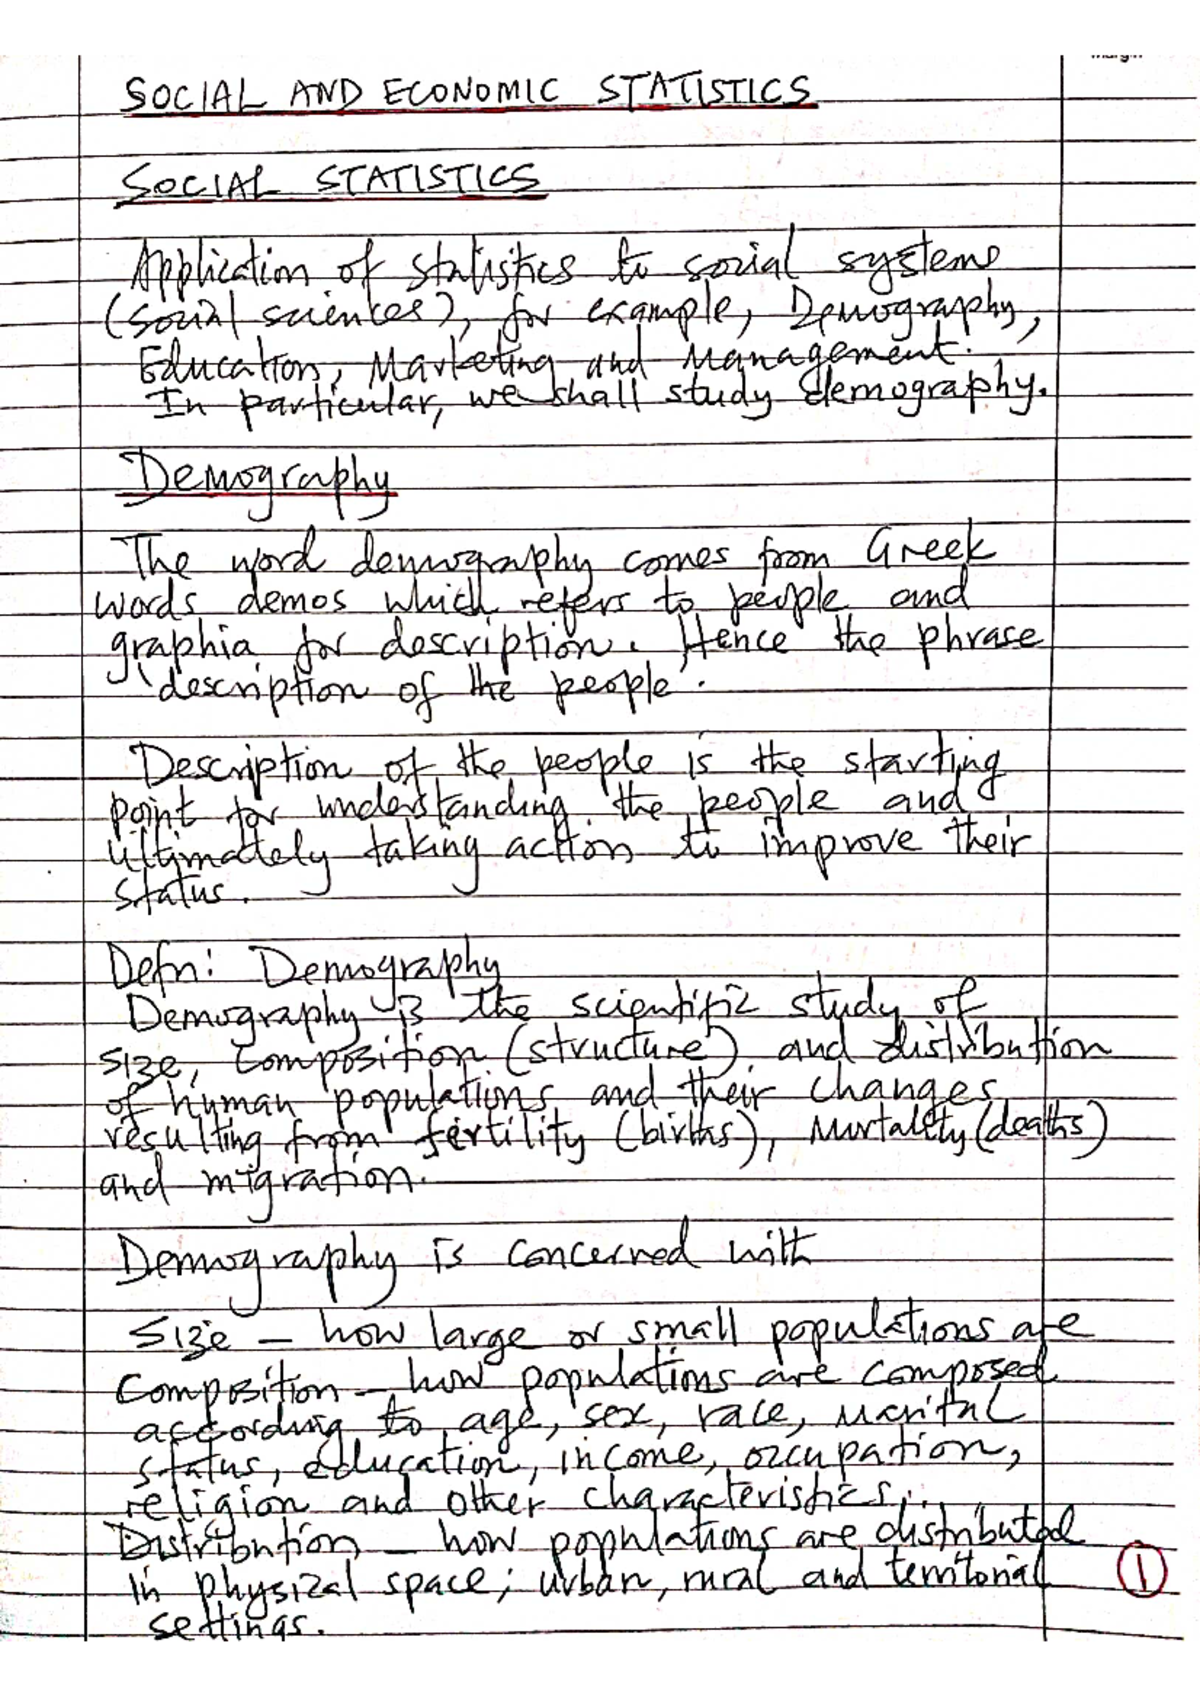 margin
SOCIAL AND ECONOMIC STATISTICS
SOCIAL STATISTICS
Application of statistics to social systems
(social sciences), for example, Demography,
Education, Marketing and Management.
In particular, we shall study demography.
Demography
The word demography comes from Greek
words demos which refers to people and
graphia for description. Hence the phrase
'description of the people'.
Description of the people is the starting
point for understanding the people and
ultimately taking action to improve their
status.
Defn: Demography
Demography is the scientific study of
size, composition (structure) and distribution
of human populations and their changes
resulting from fertility (births), mortality (deaths)
and migration.
Demography is concerned with
Size – how large or small populations are
Composition – how populations are composed
according to age, sex, race, marital
status, education, income, occupation,
religion and other characteristics...
Distribution – how populations are distributed
in physical space; urban, rural and territorial
settings.
1